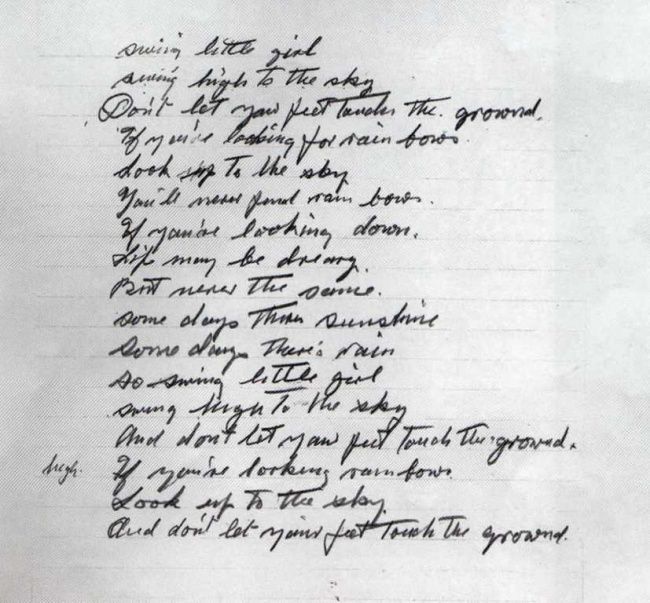 swing little girl
swing high to the sky
Don't let your feet touch the ground.
If you're looking for rain bows.
Look up to the sky
You'll never find rain bows.
If you're looking down.
Life may be dreary.
But never the same.
some days theres sunshine
some days there's rain
so swing little girl
swing high to the sky
And don't let your feet touch the ground.
high. If you're looking rainbows.
Look up to the sky
And don't let your feet touch the ground.